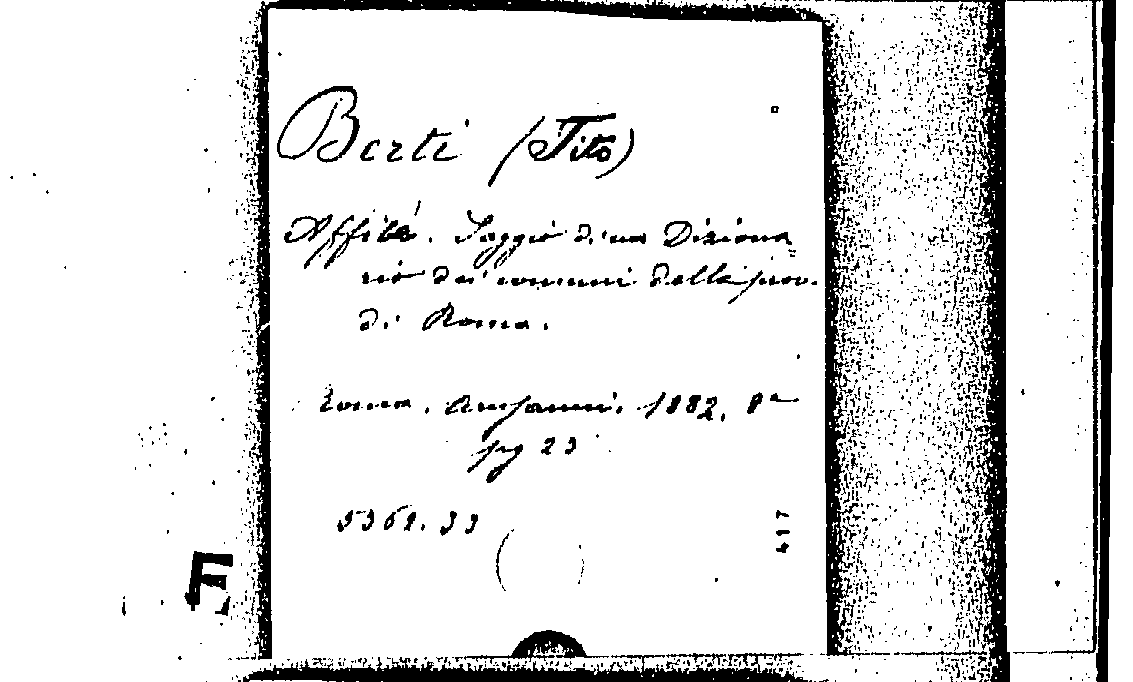 Berti (Tito)
Affile. Saggio di un Diziona
rio dei comuni della prov.
di Roma.
Roma. 1882. 8º
pg 23
5362.33
417